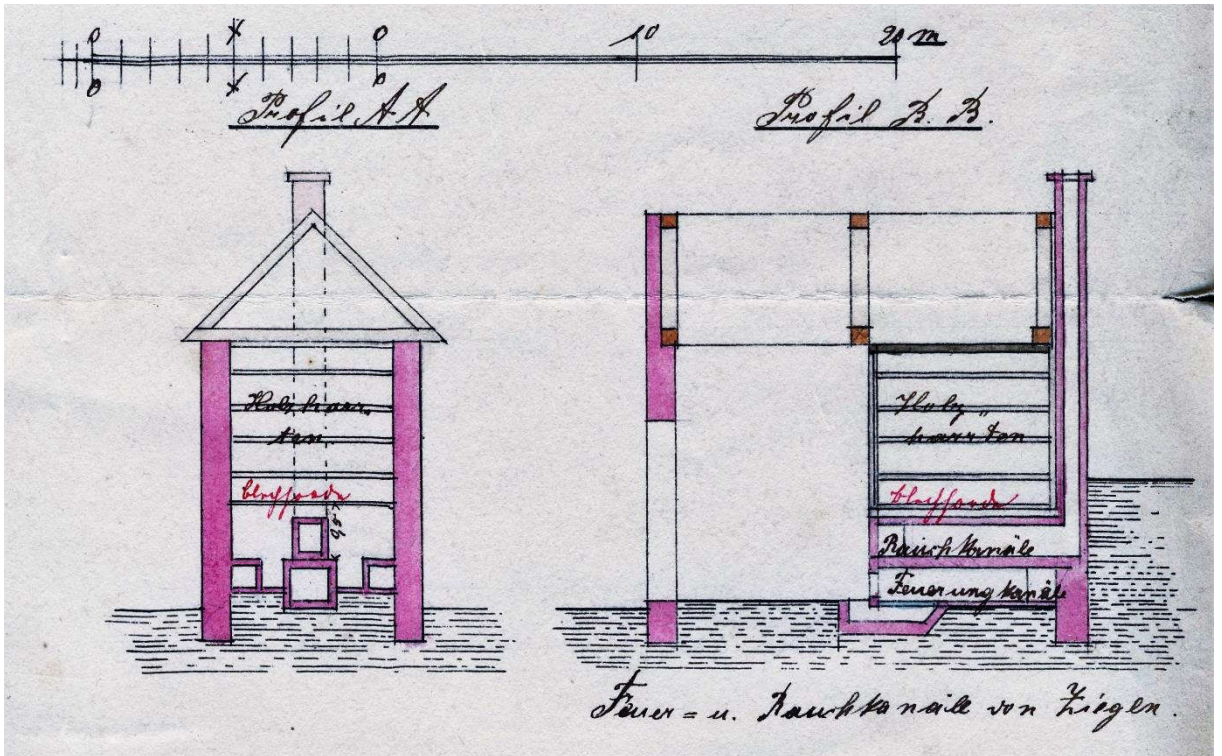 0 X 0 10 20 m
0 X 0
Profil A A
Profil B. B.
Holz harr„
ten
Blechhorde
Holz„
harrton
Blechhorde
Rauchkanäle
Feuerungkanäle
Feuer= u. Rauchkanäle von Ziegen.